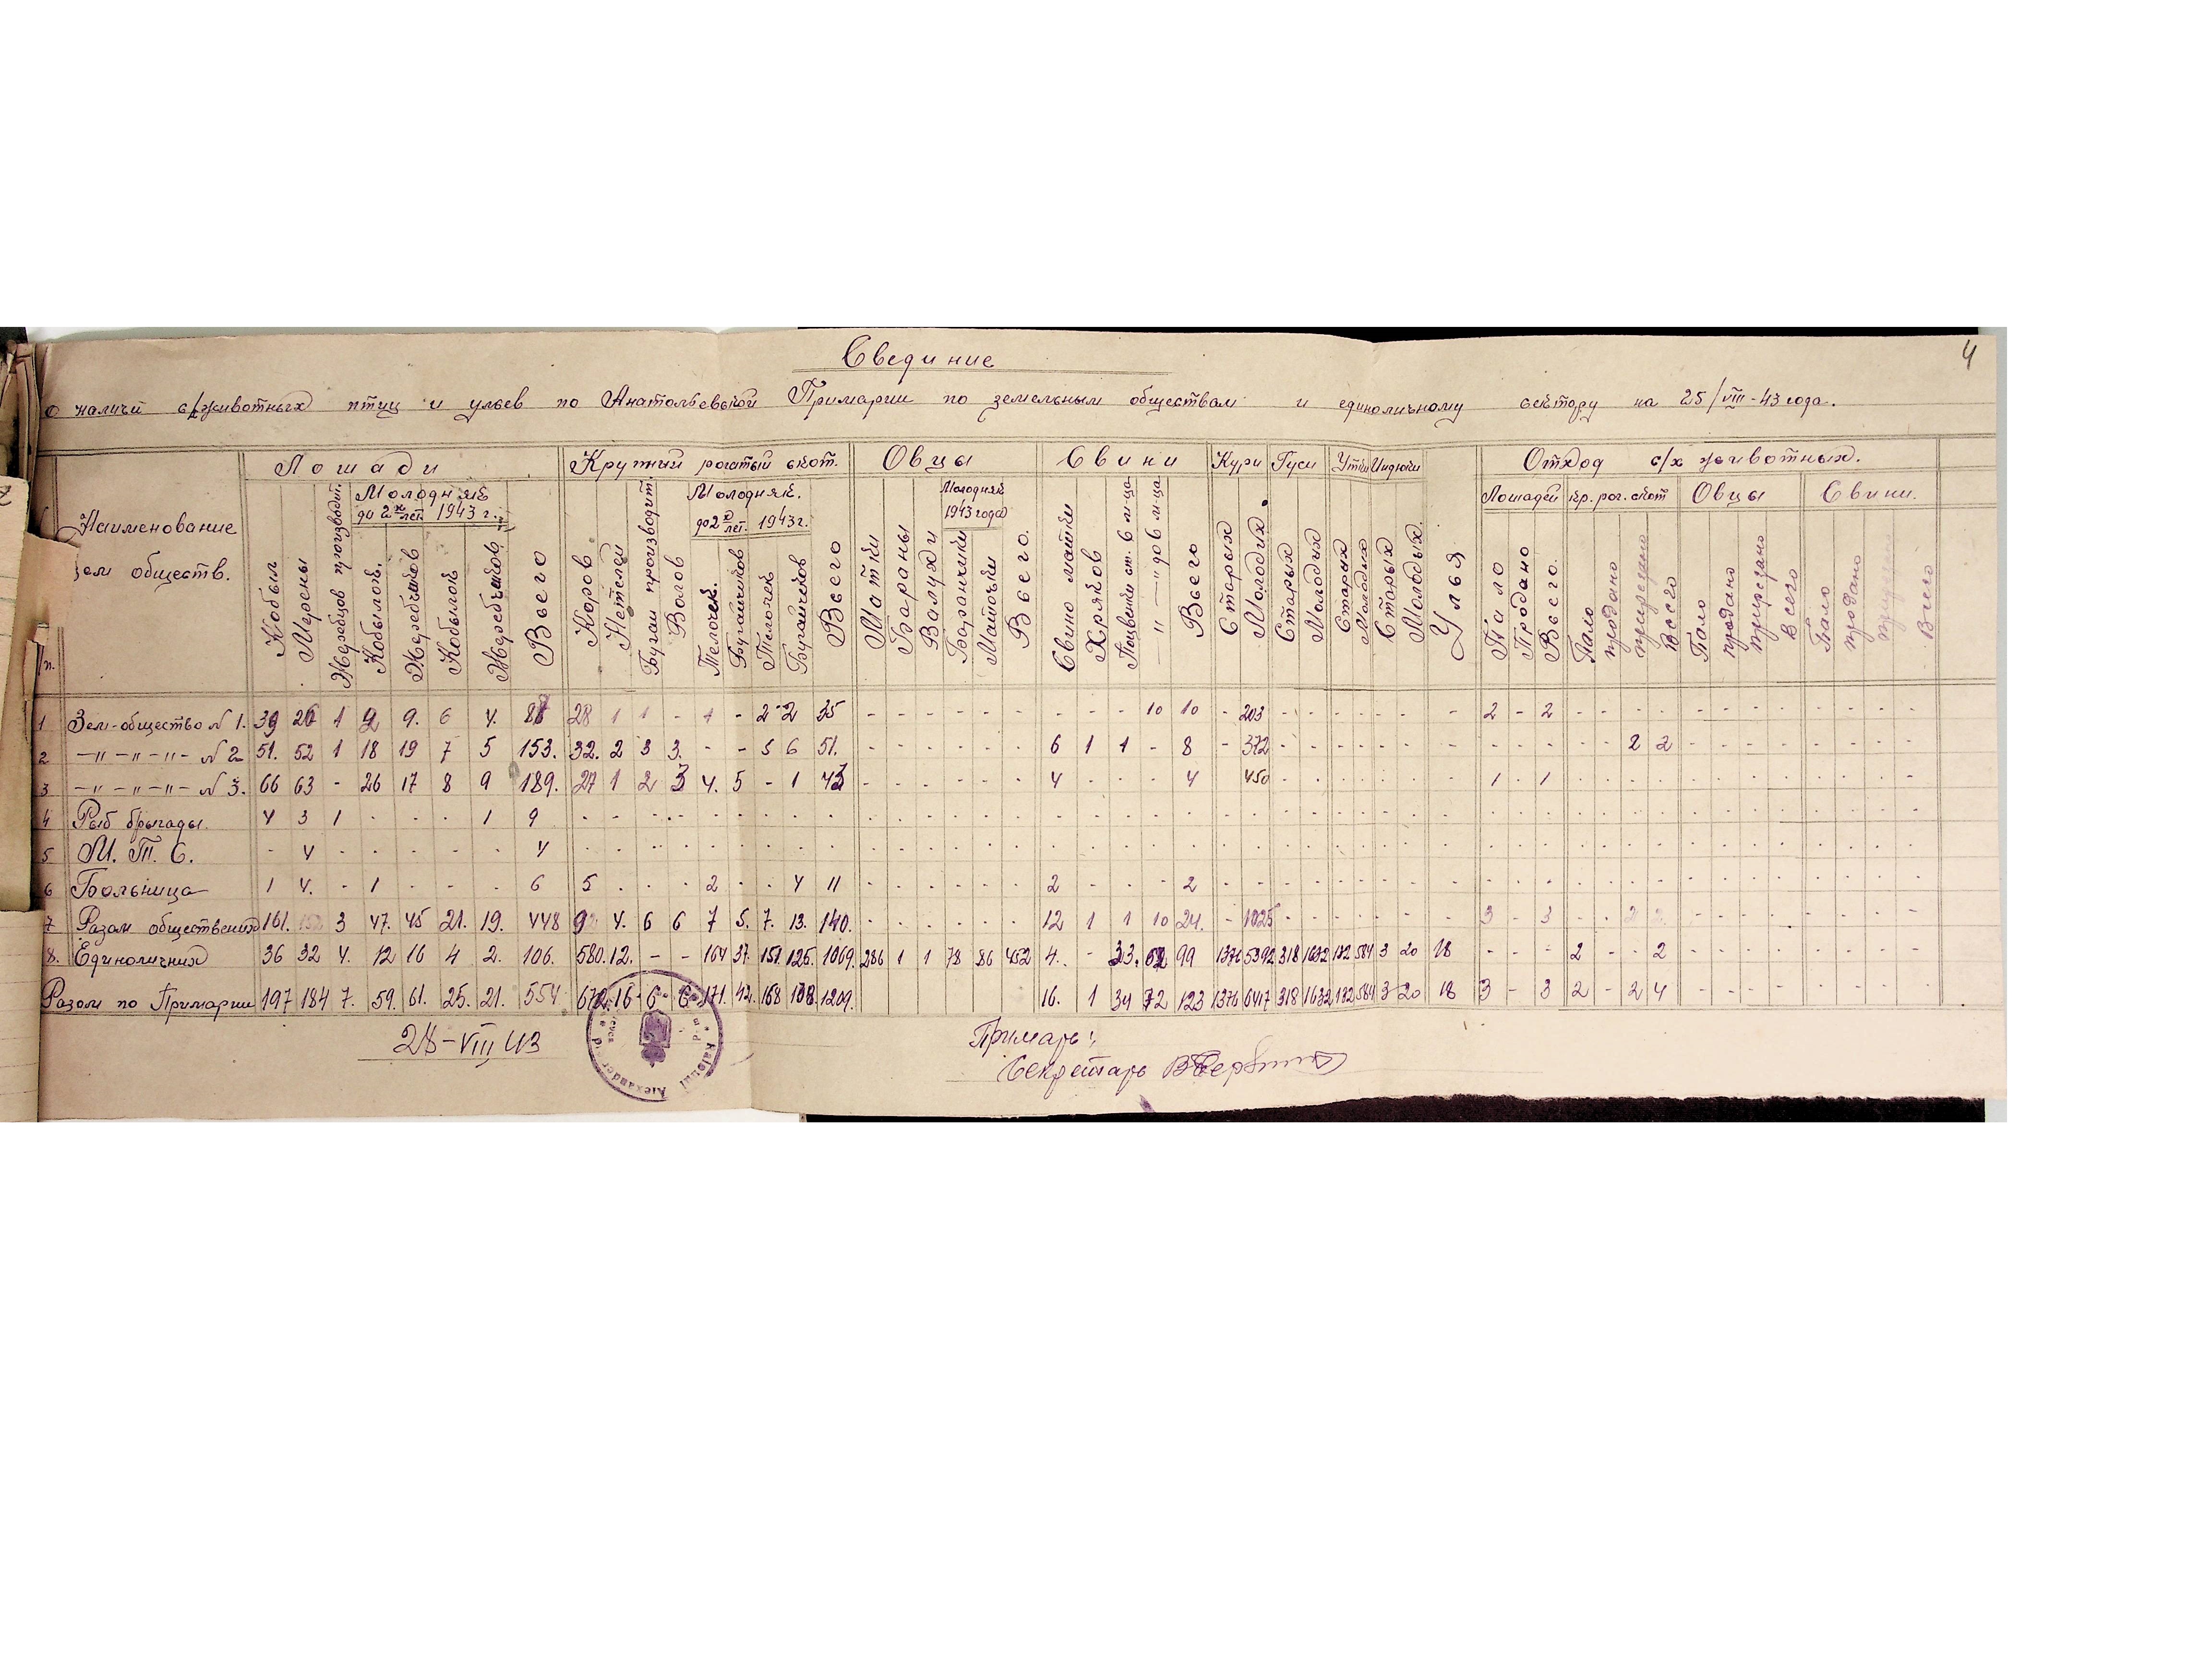 4
Свединие
о наличи с/животных птиц и ульев по Анатольевской Примарии по земельным обществам и единоличному сектору на 25/VIII-43 года.
Наименование
зем обществ.
п.
Лошади Крупный рогатый скот. Овцы Свини Кури Гуси Утки Индюки Отход с/х животных.
Молодняк до 2х лет. 1943 г. Молодняк. до 2х лет. 1943 г. Молодняк 1943 года Лошадей кр. рог. скот Овцы Свини.
Кобыл Мерены Жеребцов производит. Кобылок. Жеребчиков Кобылок Жеребчиков Всего
Коров Нетелей Бугаи производит. Волов Телочек. Бугайчиков Телочек Бугайчиков Всего
Матки Бараны Валухи Баранчики Маточки Всего.
Свино матки Хряков Поцвенки ст. 6 м-ца — " — " до 6 м-ца Всего
Старых Молодих Старых Молодых Старых Молодых Старых Молодых. Улья
Пало Продано Всего. Пало продано прирезано Всего Пало продано прирезано Всего Пало продано прирезано Всего
1 Зем-общество N 1. 39 20 1 9 9. 6 4. 88 28 1 1 - 1 - 2 2 35 - - - - - - - - - 10 10 - 203 - - - - - - - 2 - 2 - - - - - - - - - - - -
2 -"-"-"- N 2 51. 52 1 18 19 7 5 153. 32. 2 3 3. - - 5 6 51. - - - - - - 6 1 1 - 8 - 372 - - - - - - - - - - - - 2 2 - - - - - - - -
3 -"-"-"- N 3. 66 63 - 26 17 8 9 189. 27 1 2 3 4. 5 - 1 43 - - - - - 4 - - - 4 450 - - - - - - - 1 - 1 - - - - - - - - - - - -
4 Рыб бригады. 4 3 1 - - - 1 9
5 М. Т. С. - 4 - - - - - 4
6 Больница 1 4. - 1 - - - 6 5 - - - 2 - - 4 11 - - - - - - 2 - - - 2
7 Разом обществених 161. 152 3 47. 45 21. 19. 448 92 4. 6 6 7 5. 7. 13. 140. - - - - - - 12 1 1 10 24. - 1025 - - - - - - - 3 - 3 - - 2 2 - - - - - - - -
8. Единоличних 36 32 4. 12 16 4 2. 106. 580. 12. - - 164 37. 151. 125. 1069. 286 1 1 78 86 452 4. - 33. 62 99 1376 5392 318 1632 182 584 3 20 18 - - - 2 - - 2 - - - - - - - -
Разом по Примарии 197 184 7. 59. 61. 25. 21. 554 672. 16 6 6 171. 42. 168 138. 1209. 16. 1 34 72 123 1376 6417 318 1632 182 584 3 20 18 3 - 3 2 - 2 4 - - - - - - - -
28-VIII 43
Примарь:
Секретарь